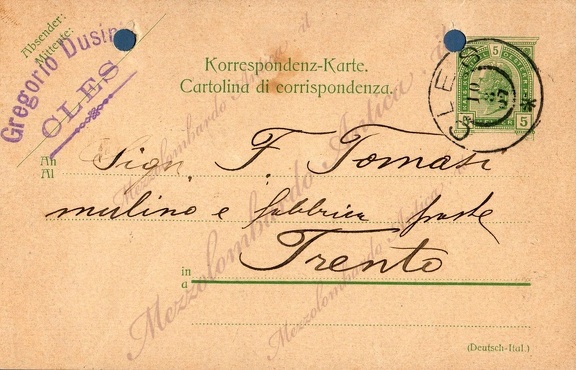 Absender:
Mittente:
Gregorio Dusini
CLES
Korrespondenz-Karte.
Cartolina di corrispondenza.
CLES
5
5
An
Al
Sign. F. Tomasi
mulino e fabbrica paste
in
a
Trento
(Deutsch-Ital.)
Mezzolombardo Antica
Mezzolombardo Antica
Mezzolombardo Antica